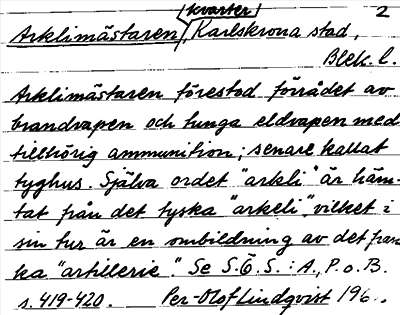 kvarter 2
Arklimästaren, Karlskrona stad,
Blek. l.
Arklimästaren förestod förrådet av
brandvapen och tunga eldvapen med
tillhörig ammunition; senare kallat
tyghus. Själva ordet "arkli" är häm-
tat från det tyska "arkeli", vilket i
sin tur är en ombildning av det frans
ka "artillerie". Se S.G.S.: A., P. o. B.
s. 419-420. Per-Olof Lindqvist 196..